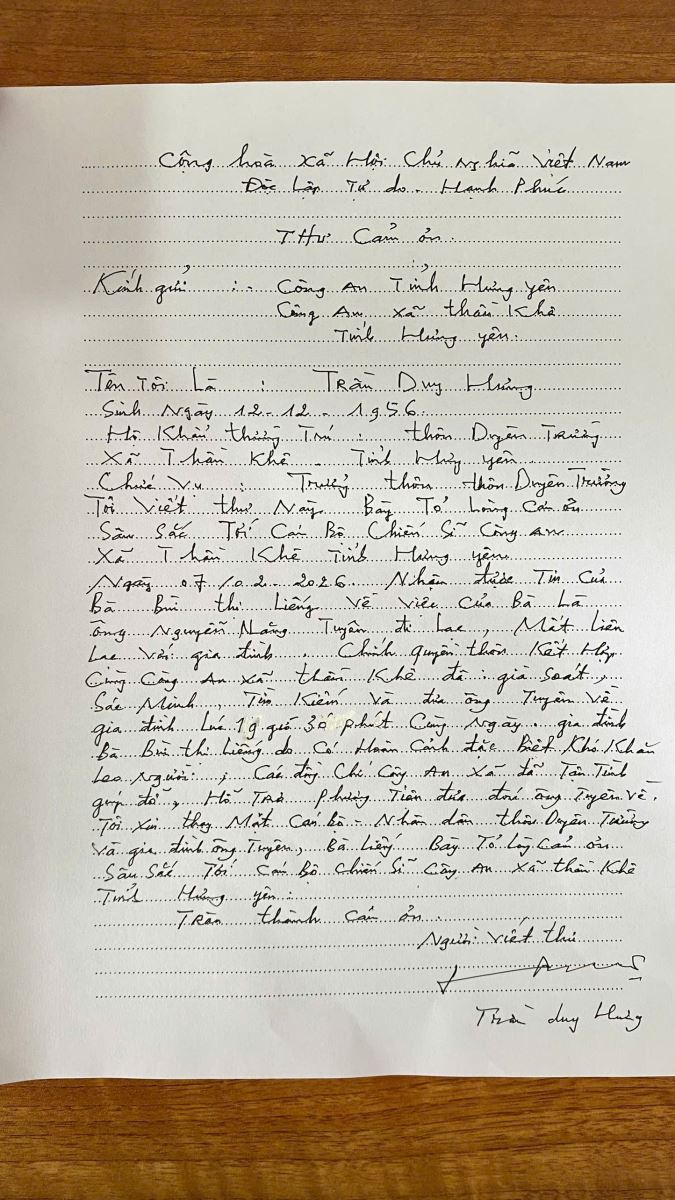 Cộng hoà Xã Hội Chủ Nghĩã Việt Nam
Độc Lập Tự do - Hạnh Phúc
THƯ Cảm ơn.
Kính gửi : - Công An Tỉnh Hưng yên
Công An xã thần Khê
Tỉnh Hưng yên.
Tên Tôi Là : Trần Duy Hưng
Sinh Ngày 12-12-1956.
Hộ Khẩu thường Trú : thôn Duyên Trường
Xã Thần Khê - Tỉnh Hưng yên
Chức Vụ : Trưởng thôn thôn Duyên Trường
Tôi Viết thư Này Bày Tỏ Lòng Cảm ơn
Sâu Sắc Tới Cán Bộ Chiến Sĩ Công an
Xã Thần Khê Tỉnh Hưng yên
Ngày 07/02-2026. Nhận được Tin Của
Bà Bùi thị Liếng Về Việc Của Bà Là
ông Nguyễn Năng Tuyên đi Lạc, Mất Liên
Lạc Với gia đình. Chính quyền thôn Kết Hợp
Cùng Công An xã thần Khê đã già Soát,
Sác Minh, Tìm Kiếm Và đưa ông Tuyên Về
gia đình Lúc 19 giờ 30 phút Cùng Ngày. gia đình
Bà Bùi thị Liếng do Có Hoàn Cảnh đặc Biệt Khó Khăn
Leo Người; Các đồng Chí Công An Xã đã Tận Tình
giúp đỡ, Hỗ Trợ Phương Tiện đưa đón ông Tuyên Về.
Tôi Xin thay Mặt Cán bộ - Nhân dân thôn Duyên Trường
Và gia đình ông Tuyên, Bà Liếng Bày Tỏ Lòng Cảm ơn
Sâu Sắc Tới Cán Bộ Chiến Sĩ Công An Xã thần Khê
Tỉnh Hưng yên.
Trân thành Cảm ơn.
Người Viết thư
Trần duy Hưng